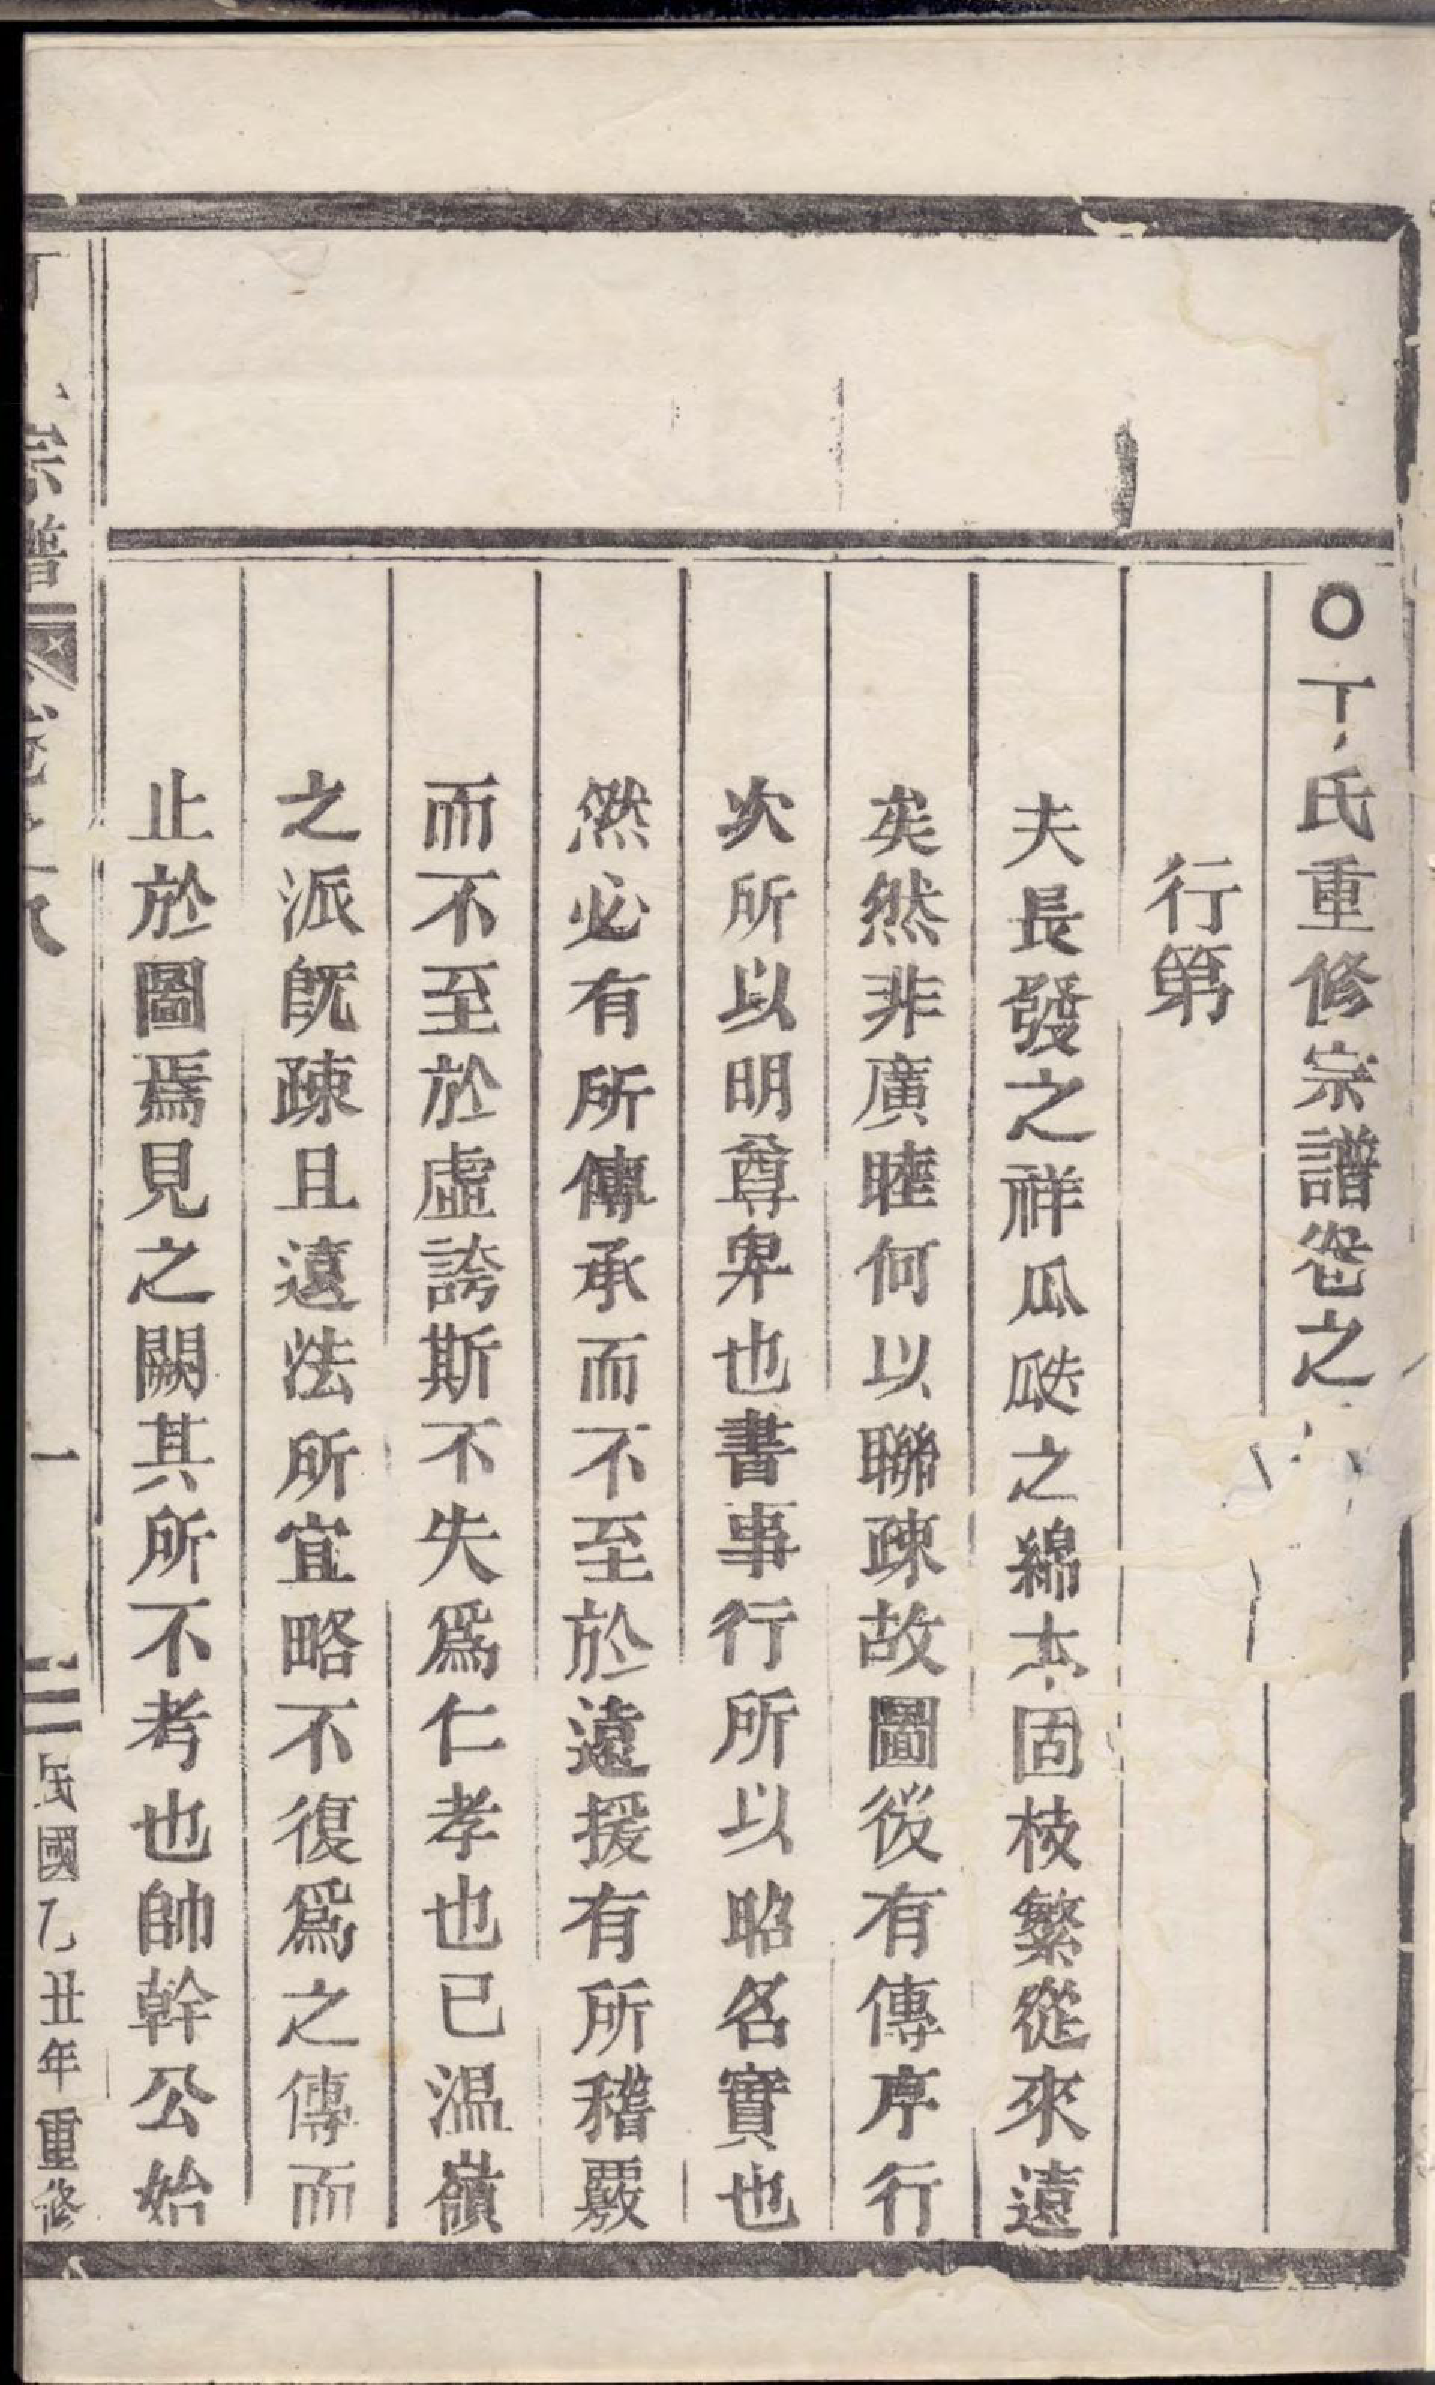 ○丁氏重修宗譜卷之
行第
夫長發之祥瓜瓞之綿本固枝繁從來遠
矣然非廣睦何以聯疎故圖後有傳序行
次所以明尊卑也書事行所以昭名實也
然必有所傳承而不至於遠援有所稽覈
而不至於虛誇斯不失爲仁孝也已温嶺
之派既疎且遠法所宜略不復爲之傳而
止於圖焉見之闕其所不考也帥幹公始
丁氏宗譜
卷之八
一
民國乙丑年重修